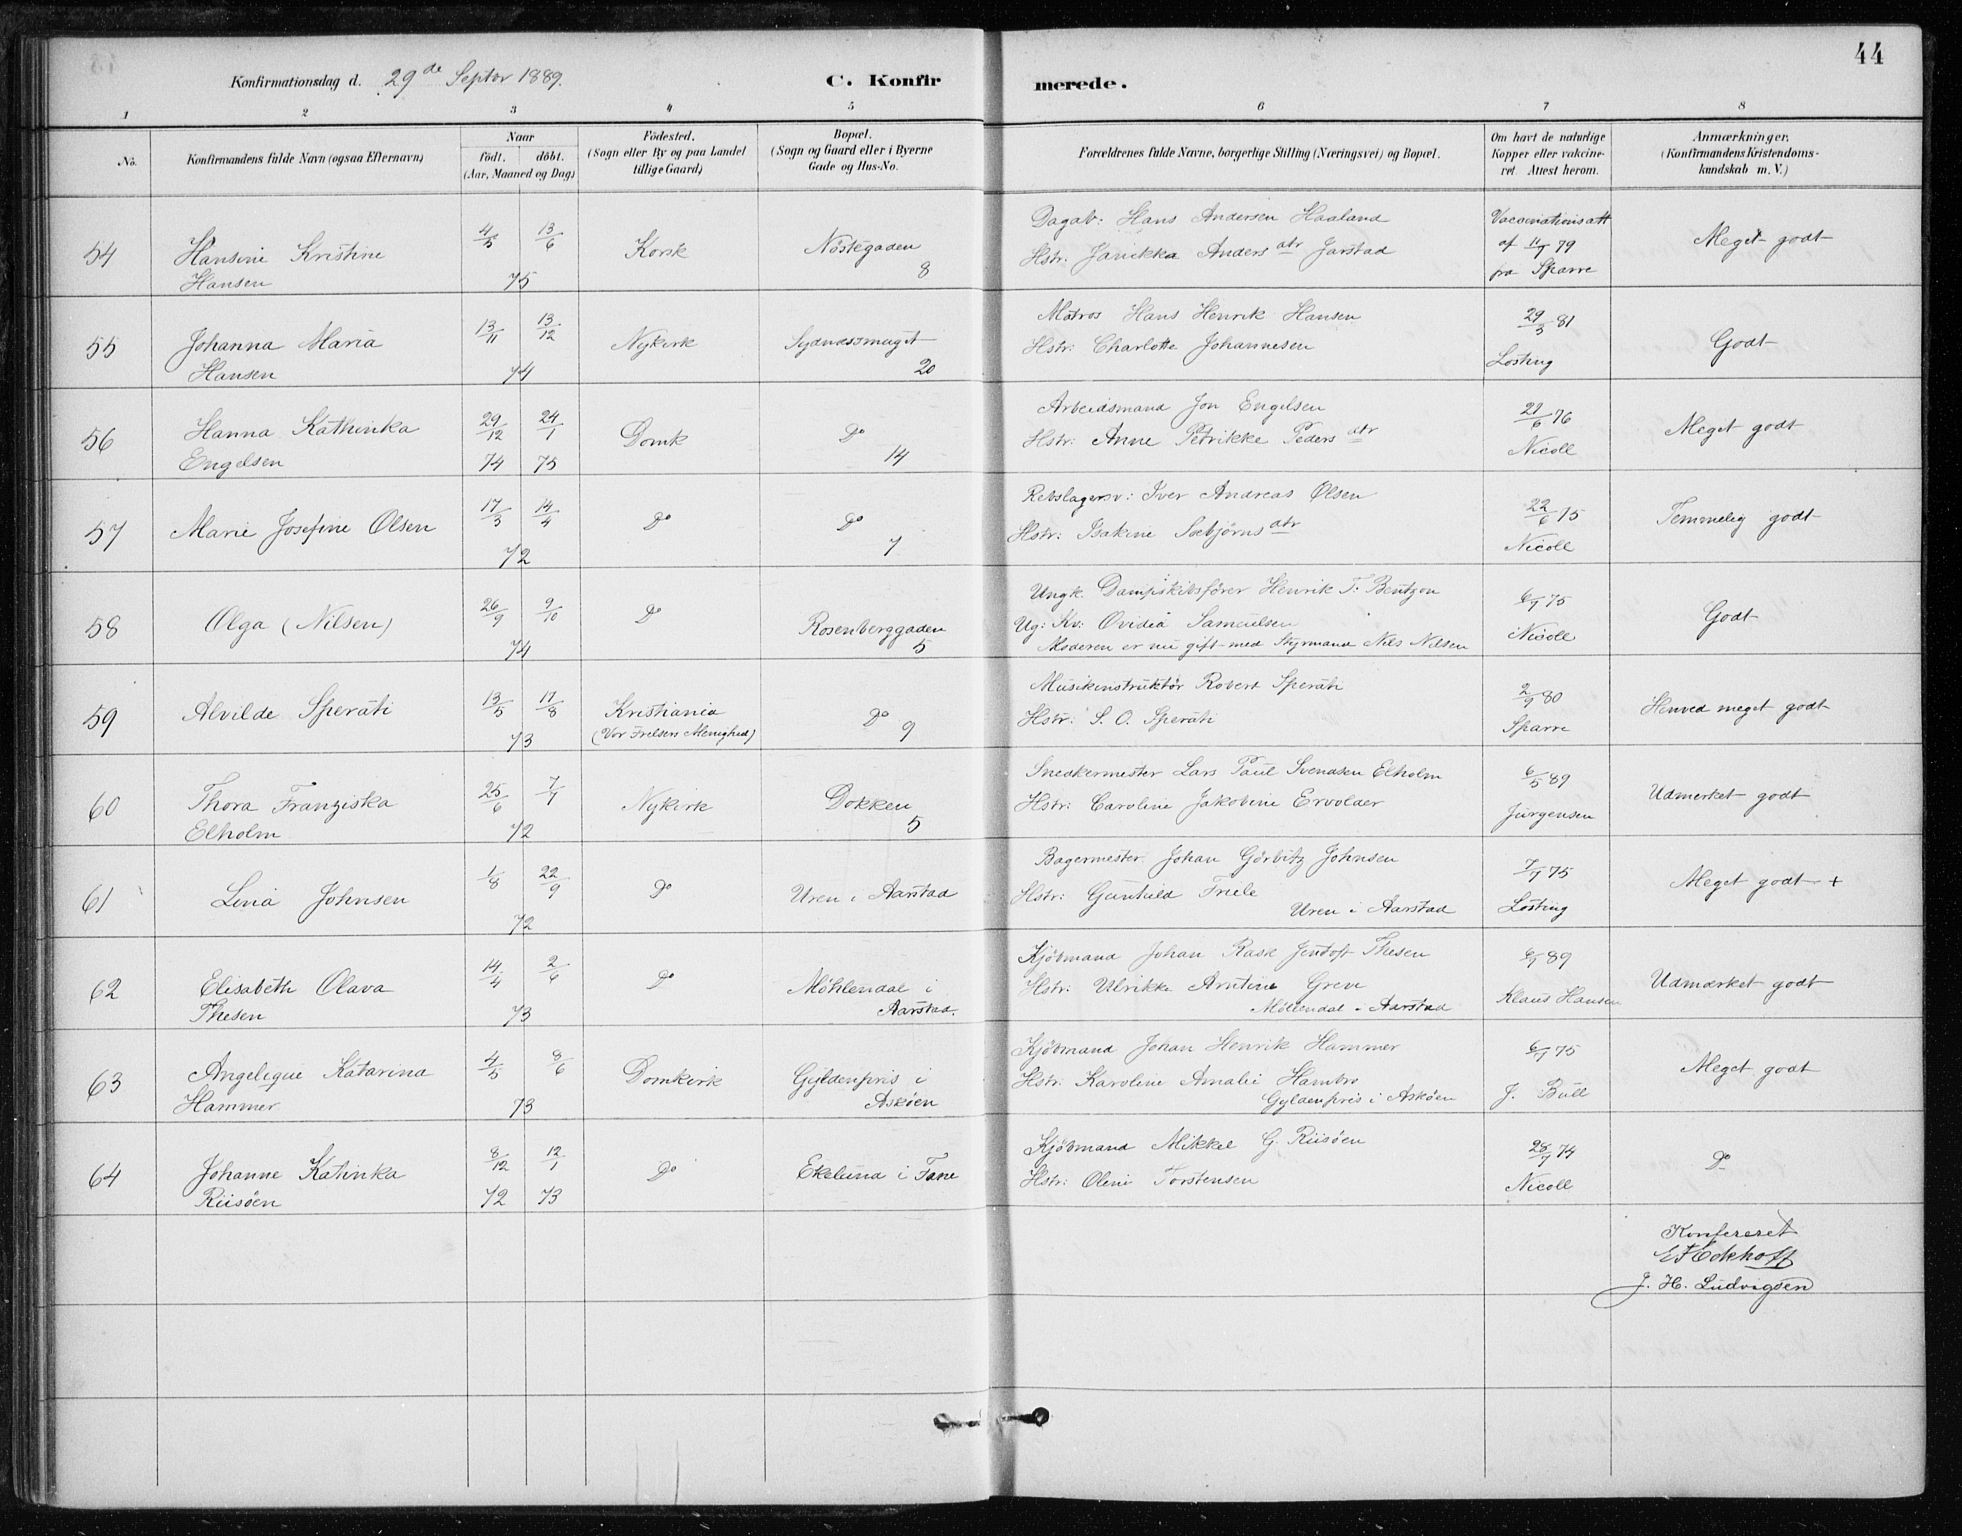 44
Konfirmationsdag d. 29de Septbr 1889.
C. Konfir merede.
1 2 3 4 5 6 7 8
No. Konfirmandens fulde Navn (ogsaa Efternavn) Naar födt. döbt. (Aar, Maaned og Dag) Födested. (Sogn eller By og paa Landet tillige Gaard) Bopæl. (Sogn og Gaard eller i Byerne Gade og Hus-No. Forældrenes fulde Navne, borgerlige Stilling (Næringsvei) og Bopæl. Om havt de naturlige Kopper eller vakcineret Attest herom. Anmærkninger. (Konfirmandens Kristendomskundskab m. V.)
54 Hansine Kristine 4/5 13/6 Korsk Nöstegaden Dagab: Hans Andersen Haaland Vaccinationsatt Meget godt
Hansen 75 8 Hstr: Janikka Anders dtr Jarstad af 11/7 79
fra Sparre
55 Johanna Maria 13/11 13/12 Nykirk Sydnæssmuget Matros Hans Henrik Hansen 29/3 81 Godt
Hansen 74 20 Hstr: Charlotte Johannesen Losting
56 Hanna Kathinka 29/12 24/1 Domk Do Arbeidsmand Jon Engelsen 21/6 76 Meget godt
Engelsen 74 75 14 Hstr: Anne Petrikke Peders dtr Nicoll
57 Marie Josefine Olsen 17/3 14/4 Do Do Rebslagersv: Iver Andreas Olsen 22/6 75 Temmelig godt
72 7 Hstr: Isakine Sæbjörns dtr Nicoll
58 Olga (Nilsen) 26/9 9/10 Do Rosenberggaden Ungk. Dampskibsförer Henrik T. Bentzon 6/7 75 Godt
74 5 Ug: Kv: Ovidia Samuelsen Nicoll
Moderen er nu gift med Styrmand Nils Nilsen
59 Alvilde Sperati 13/5 17/8 Kristiania Do Musikinstruktör Robert Sperati 2/9 80 Henved meget godt
73 (Vor Frelsers Menighed) 9 Hstr: S. O. Sperati Sparre
60 Thora Franziska 25/6 7/7 Nykirk Dokken Snedkermester Lars Paul Svendsen Elholm 6/5 89 Udmerket godt
Elholm 72 5 Hstr: Caroline Jakobine Ervolder Jürgensen
61 Lina Johnsen 1/8 22/9 Do Uren i Aarstad Bagermester Johan Görbitz Johnsen 7/7 75 Meget godt +
72 Hstr: Gunhild Friele Losting
Uren i Aarstad
62 Elisabeth Olava 14/4 2/6 Do Möhlendal i Kjöbmand Johan Rask Jentoft Thesen 6/7 89 Udmærket godt
Thesen 73 Aarstad. Hstr: Ulrikke Arntine Greve Klaus Hansen
Möllendal i Aarstad
63 Angelique Katarina 4/5 8/6 Domkirk Gyldenpris i Kjöbmand Johan Henrik Hammer 6/7 75 Meget godt
Hammer 73 Asköen Hstr: Karoline Amalie Hambro J. Bull
Gyldenpris i Asköen
64 Johanne Katinka 8/12 12/1 Do Ekelund i Fane Kjöbmand Mikkel G. Riisöen 28/7 74 Do
Riisöen 72 73 Hstr: Oline Torstensen Nicoll
Konfereret
E F Eckhoff
J. H. Ludvigsen